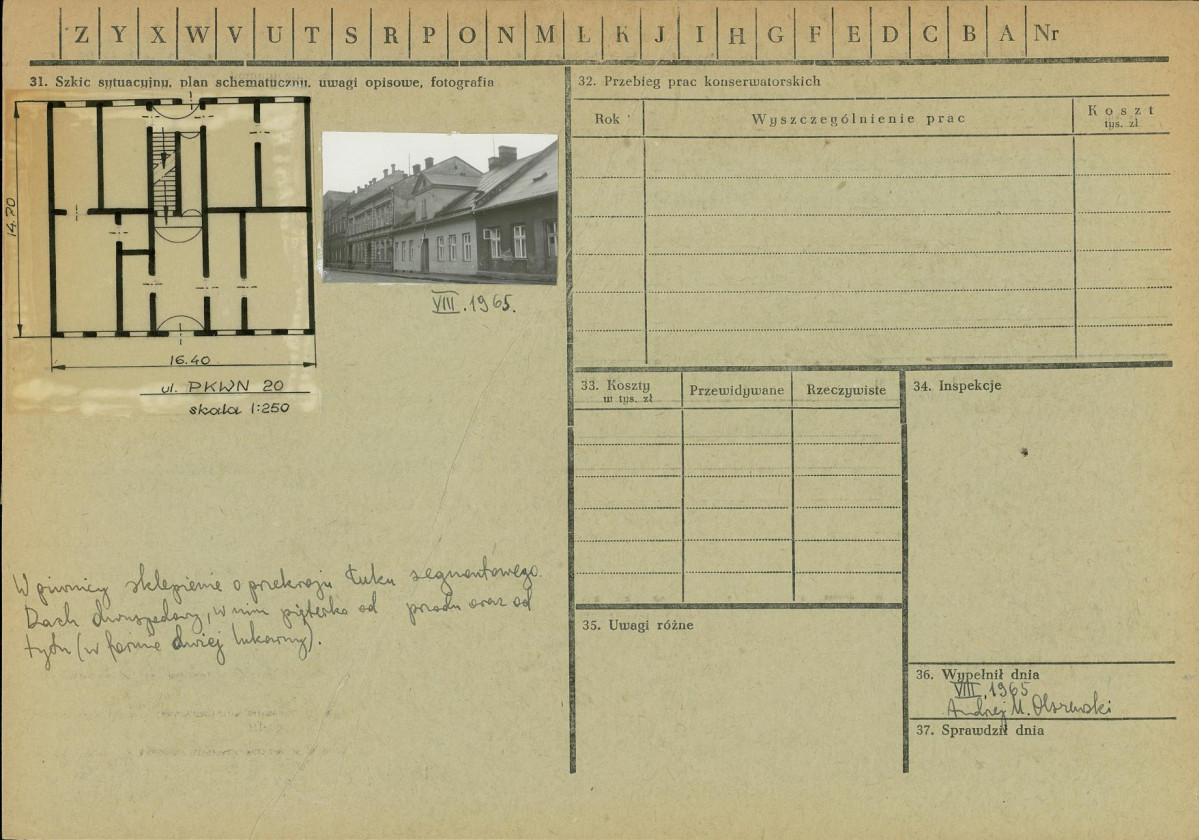 Z Y X W V U T S R P O N M Ł K J I H G F E D C B A Nr
31. Szkic sytuacyjny, plan schematyczny, uwagi opisowe, fotografia
14.70
16.40
ul. PKWN 20
skala 1:250
VIII.1965.
W piwnicy sklepienie o przekroju łuku segmentowego.
Dach dwuspadowy, w nim pięterko od przodu oraz od
tyłu (w formie dużej lukarny).
32. Przebieg prac konserwatorskich
Rok
Wyszczególnienie prac
Koszt
tys. zł
33. Koszty
w tys. zł
Przewidywane
Rzeczywiste
34. Inspekcje
35. Uwagi różne
36. Wypełnił dnia
VIII.1965
Andrzej M. Olszewski
37. Sprawdził dnia